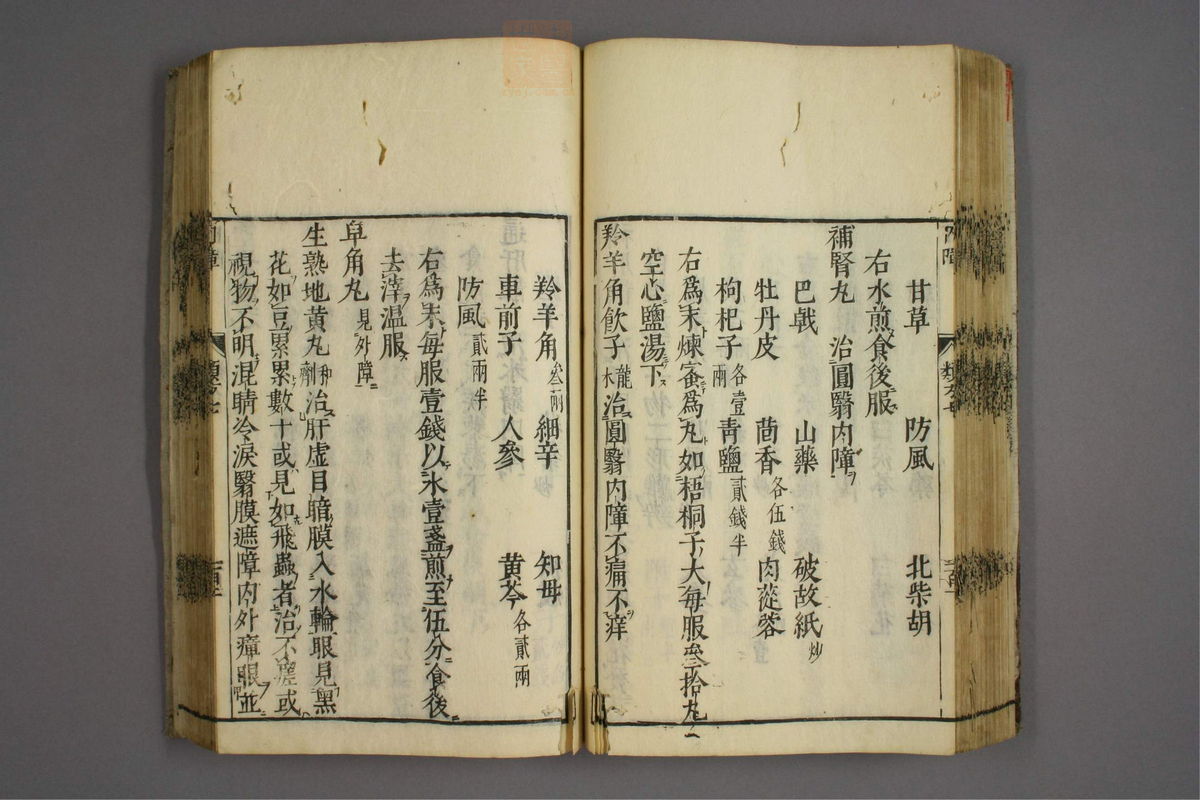 甘草　防風　北柴胡
右水煎食後服
補腎丸　治圓翳内障
巴戟　山藥　破故紙炒
牡丹皮　茴香各伍錢　肉蓯蓉
枸杞子各壹兩　青鹽貳錢半
右爲末煉蜜爲丸如梧桐子大每服叄拾丸
空心鹽湯下
羚羊角飲子龍木治圓翳内障不痛不痒
羚羊角叄兩　細辛　知母
車前子　人參　黄芩各貳兩
防風貳兩半
右爲末每服壹錢以水壹盞煎至伍分食後
去滓温服
皁角丸見外障
生熟地黄丸和劑治肝虚目暗膜入水輪眼見黑
花如豆累累數十或見如飛蟲者治不瘥或
視物不明混睛冷淚翳膜遮障内外瘴眼並